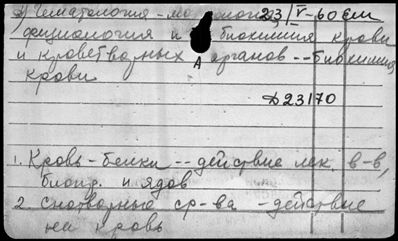 а) Гематология - морфология, 23/V-60 ем
физиология и биохимия крови
и кроветворных органов -- биохимия
крови
Д23170
1. Кровь - белки -- действие лек. в-в,
биопр. и ядов
2 Снотворные ср-ва - действие
на кровь